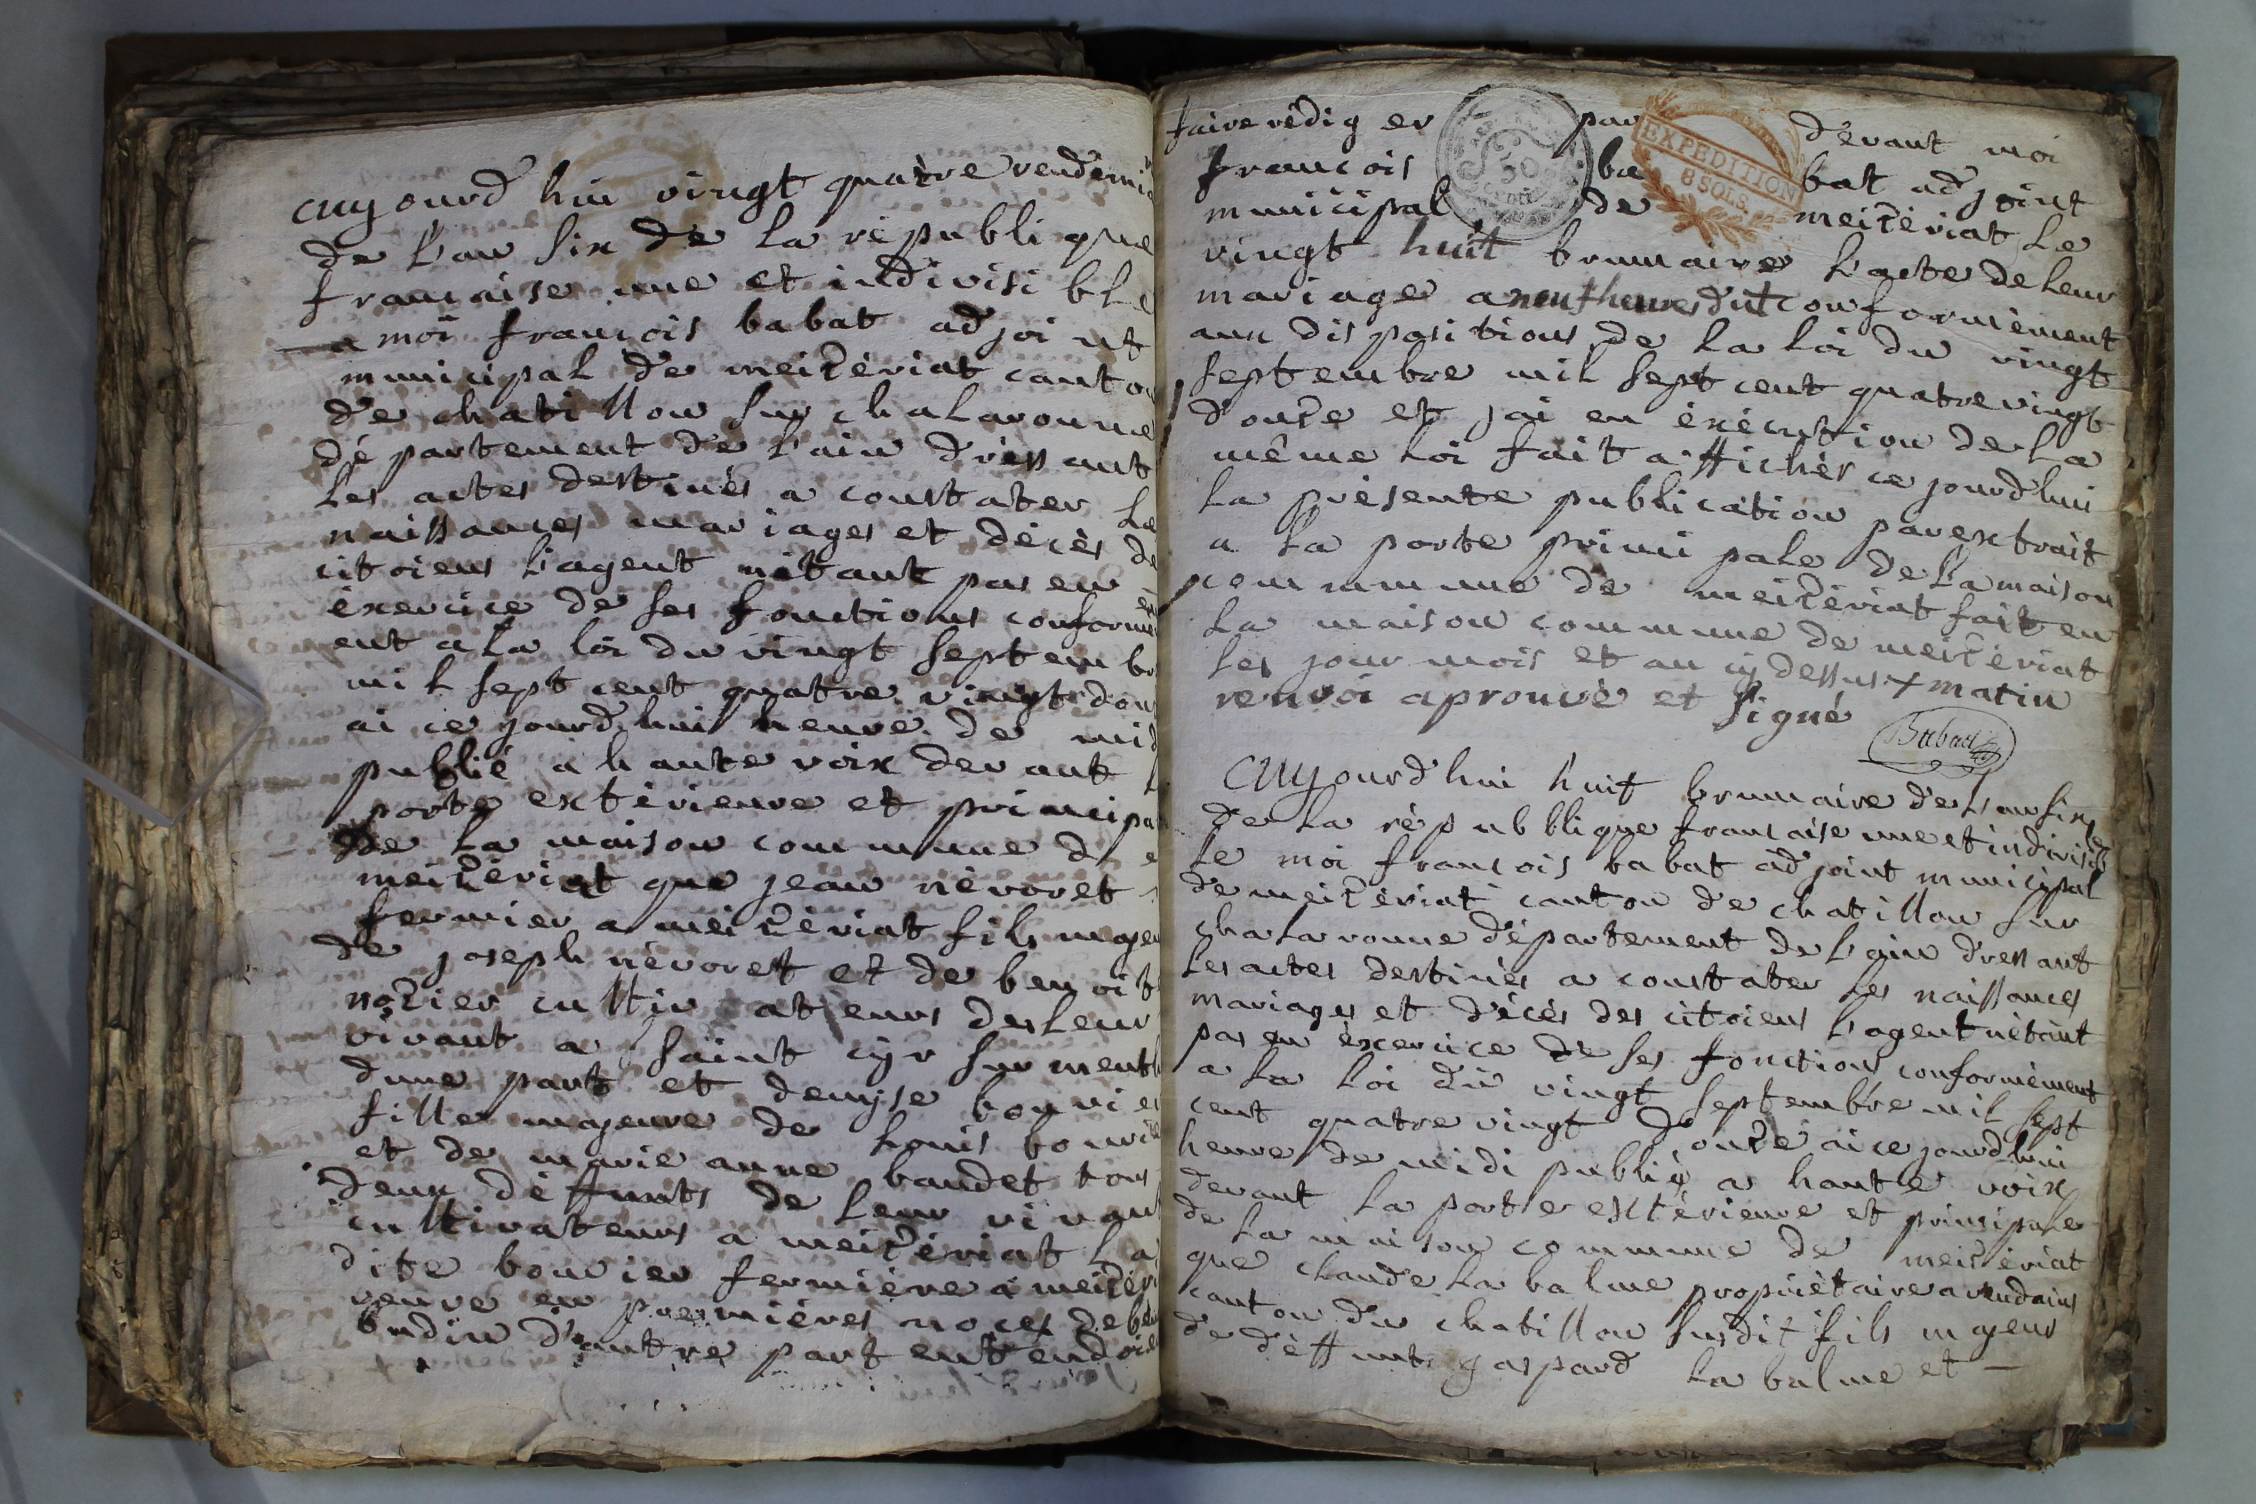 aujourd'hui vingt quatre vendemi
de l'an six de la republique
francaise une et indivisi ble
a moi francois babat adjoint
municipal de meizériat canton
de chatillon sur chalaronne
département de l'ain dressant
les actes destinés a constater le
naissances mariages et décès de
citoiens l'agent nétant pas en
éxercice de ses fonctions conformé
ent a la loi du vingt septembr
mil sept cent quatre vingt douz
ai ce jourd'hui heure de mid
publié a haute voix devant l
porte extérieure et principa
de la maison commune de
meizériat que jean névoret
fermier a meizériat fils majeu
de joseph névoret et de benoit
nozier cultivateurs de leur
vivant a saint cyr sur menth
dune part et denyse bouvier
fille majeure de louis bouvie
et de marie anne baudet tous
deux déffunts de leur vivant
cultivateurs a meizériat la
dite bouvier fermière a meizéri
veuve en premières noces de be
budin d'autre part entendoie
faire rédiger par devant moi
francois babat adjoint
municipal de meizériat le
vingt huit brumaire l'acte de leur
mariage a neuf heures du + conformément
aux dispositions de la loi du vingt
septembre mil sept cent quatrevingt
douze et jai en éxécution de la
même loi fait afficher ce jourd'hui
la présente publication par extrait
a la porte principale de la maison
commune de meizériat fait en
la maison commune de meizériat
les jour mois et an cy dessus + matin
renvoi aprouvé et signé
Babat
aujourd'hui huit brumaire de l'an six
de la républblique francaise une et indivisib
le moi francois babat adjoint municipal
de meizériat canton de chatillon sur
chalaronne département de l'ain dressant
les actes destinés a constater les naissances
mariages et décès des citoiens l'agent nétant
pas en éxercice de ses fonctions conformément
a la loi du vingt septembre mil sept
cent quatre vingt douze ai ce jourd'hui
heure de midi publié a haute voix
devant la porte extérieure et principale
de la maison commune de meizériat
que claude la balme propriétaire a vendains
canton du chatillon susdit fils majeur
de déffunts gaspard la balme et —
50
EXPEDITION
8 SOLS.